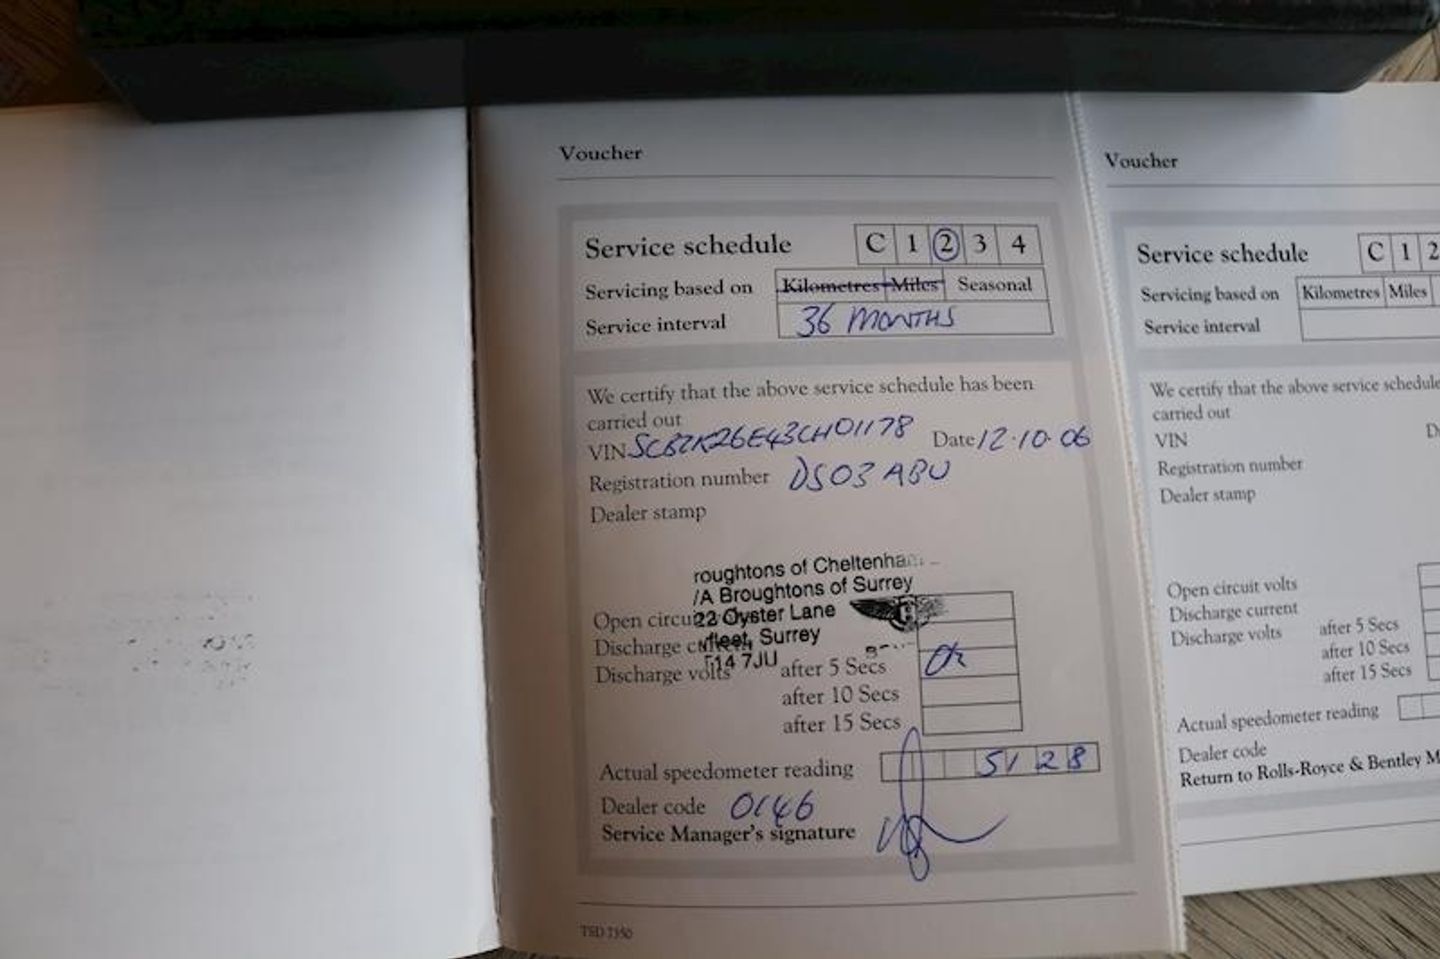 Voucher
Service schedule C 1 2 3 4
Servicing based on Kilometres Miles Seasonal
Service interval 36 MONTHS
We certify that the above service schedule has been
carried out
VIN SCBZK26E43CH01178 Date 12.10.06
Registration number DS03 ABU
Dealer stamp
roughtons of Cheltenha
/A Broughtons of Surrey
22 Oyster Lane
fleet, Surrey
14 7JU
Open circu
Discharge c
Discharge volts after 5 Secs Ok
after 10 Secs
after 15 Secs
Actual speedometer reading 5128
Dealer code 0146
Service Manager's signature
TSD 7350
Voucher
Service schedule C 1 2
Servicing based on Kilometres Miles
Service interval
We certify that the above service schedule
carried out
VIN D
Registration number
Dealer stamp
Open circuit volts
Discharge current
Discharge volts after 5 Secs
after 10 Secs
after 15 Secs
Actual speedometer reading
Dealer code
Return to Rolls-Royce & Bentley M